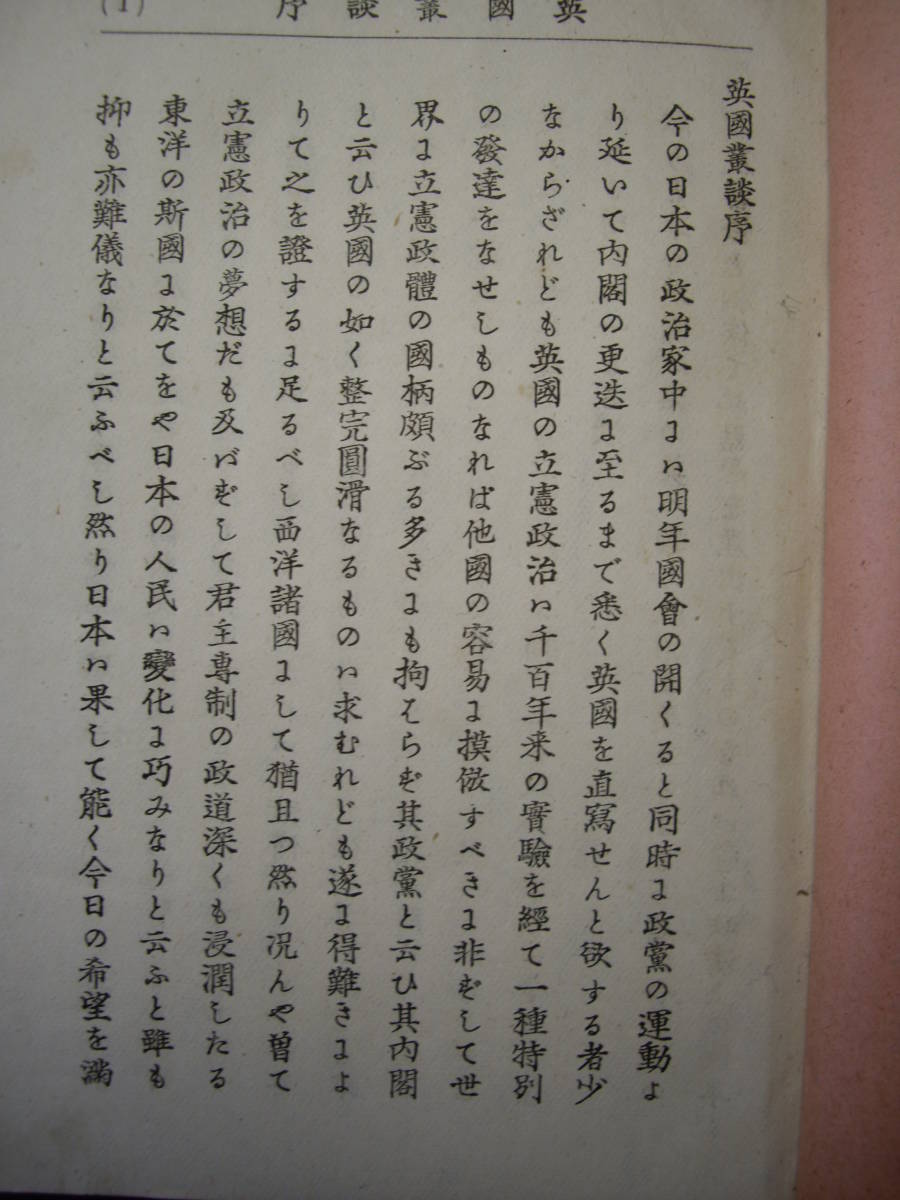 英國叢談序 (1)
英國叢談序
今の日本の政治家中には明年國會の開くると同時に政黨の運動よ
り延いて内閣の更迭に至るまで悉く英國を直寫せんと欲する者少
なからざれども英國の立憲政治は千百年来の實驗を經て一種特別
の發達をなせしものなれば他國の容易に摸倣すべきに非ずして世
界に立憲政體の國柄頗ぶる多きにも拘はらず其政黨と云ひ其内閣
と云ひ英國の如く整完圓滑なるものは求むれども遂に得難きによ
りて之を證するに足るべし西洋諸國にして猶且つ然り况んや曽て
立憲政治の夢想だも及ばずして君主専制の政道深くも浸潤したる
東洋の斯國に於てをや日本の人民は變化に巧みなりと云ふと雖も
抑も亦難儀なりと云ふべし然り日本は果して能く今日の希望を滿